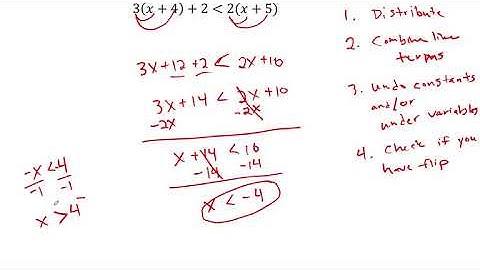 3(x + 4) + 2 < 2(x + 5)
3x + 12 + 2 < 2x + 10
3x + 14 < 2x + 10
-2x -2x
x + 14 < 10
-14 -14
x < -4
-x < -4
-1 -1
x > 4
1. Distribute
2. Combine like
terms
3. Undo constants
and/or
under variables
4. Check if you
have flip